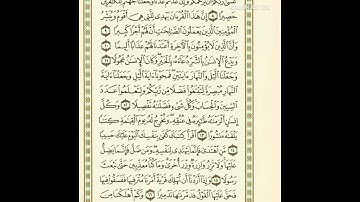 عسى ربكم أن يرحمكم وإن عدتم عدنا وجعلنا جهنم للكافرين
حصيرا ۝٨ إن هذا القرءان يهدي للتي هي أقوم ويبشر
المؤمنين الذين يعملون الصالحات أن لهم أجرا كبيرا ۝٩
وأن الذين لا يؤمنون بالآخرة أعتدنا لهم عذابا أليما ۝١٠
ويدع الإنسان بالشر دعاءه بالخير وكان الإنسان عجولا ۝١١
وجعلنا الليل والنهار ءايتين فمحونا ءاية الليل وجعلنا ءاية
النهار مبصرة لتبتغوا فضلا من ربكم ولتعلموا عدد
السنين والحساب وكل شيء فصلناه تفصيلا ۝١٢ وكل
إنسان ألزمناه طائره في عنقه ونخرج له يوم القيامة كتابا
يلقاه منشورا ۝١٣ اقرأ كتابك كفى بنفسك اليوم عليك حسيبا
۝١٤ من اهتدى فإنما يهتدي لنفسه ومن ضل فإنما يضل
عليها ولا تزر وازرة وزر أخرى وما كنا معذبين حتى نبعث
رسولا ۝١٥ وإذا أردنا أن نهلك قرية أمرنا مترفيها ففسقوا فيها
فحق عليها القول فدمرناها تدميرا ۝١٦ وكم أهلكنا من